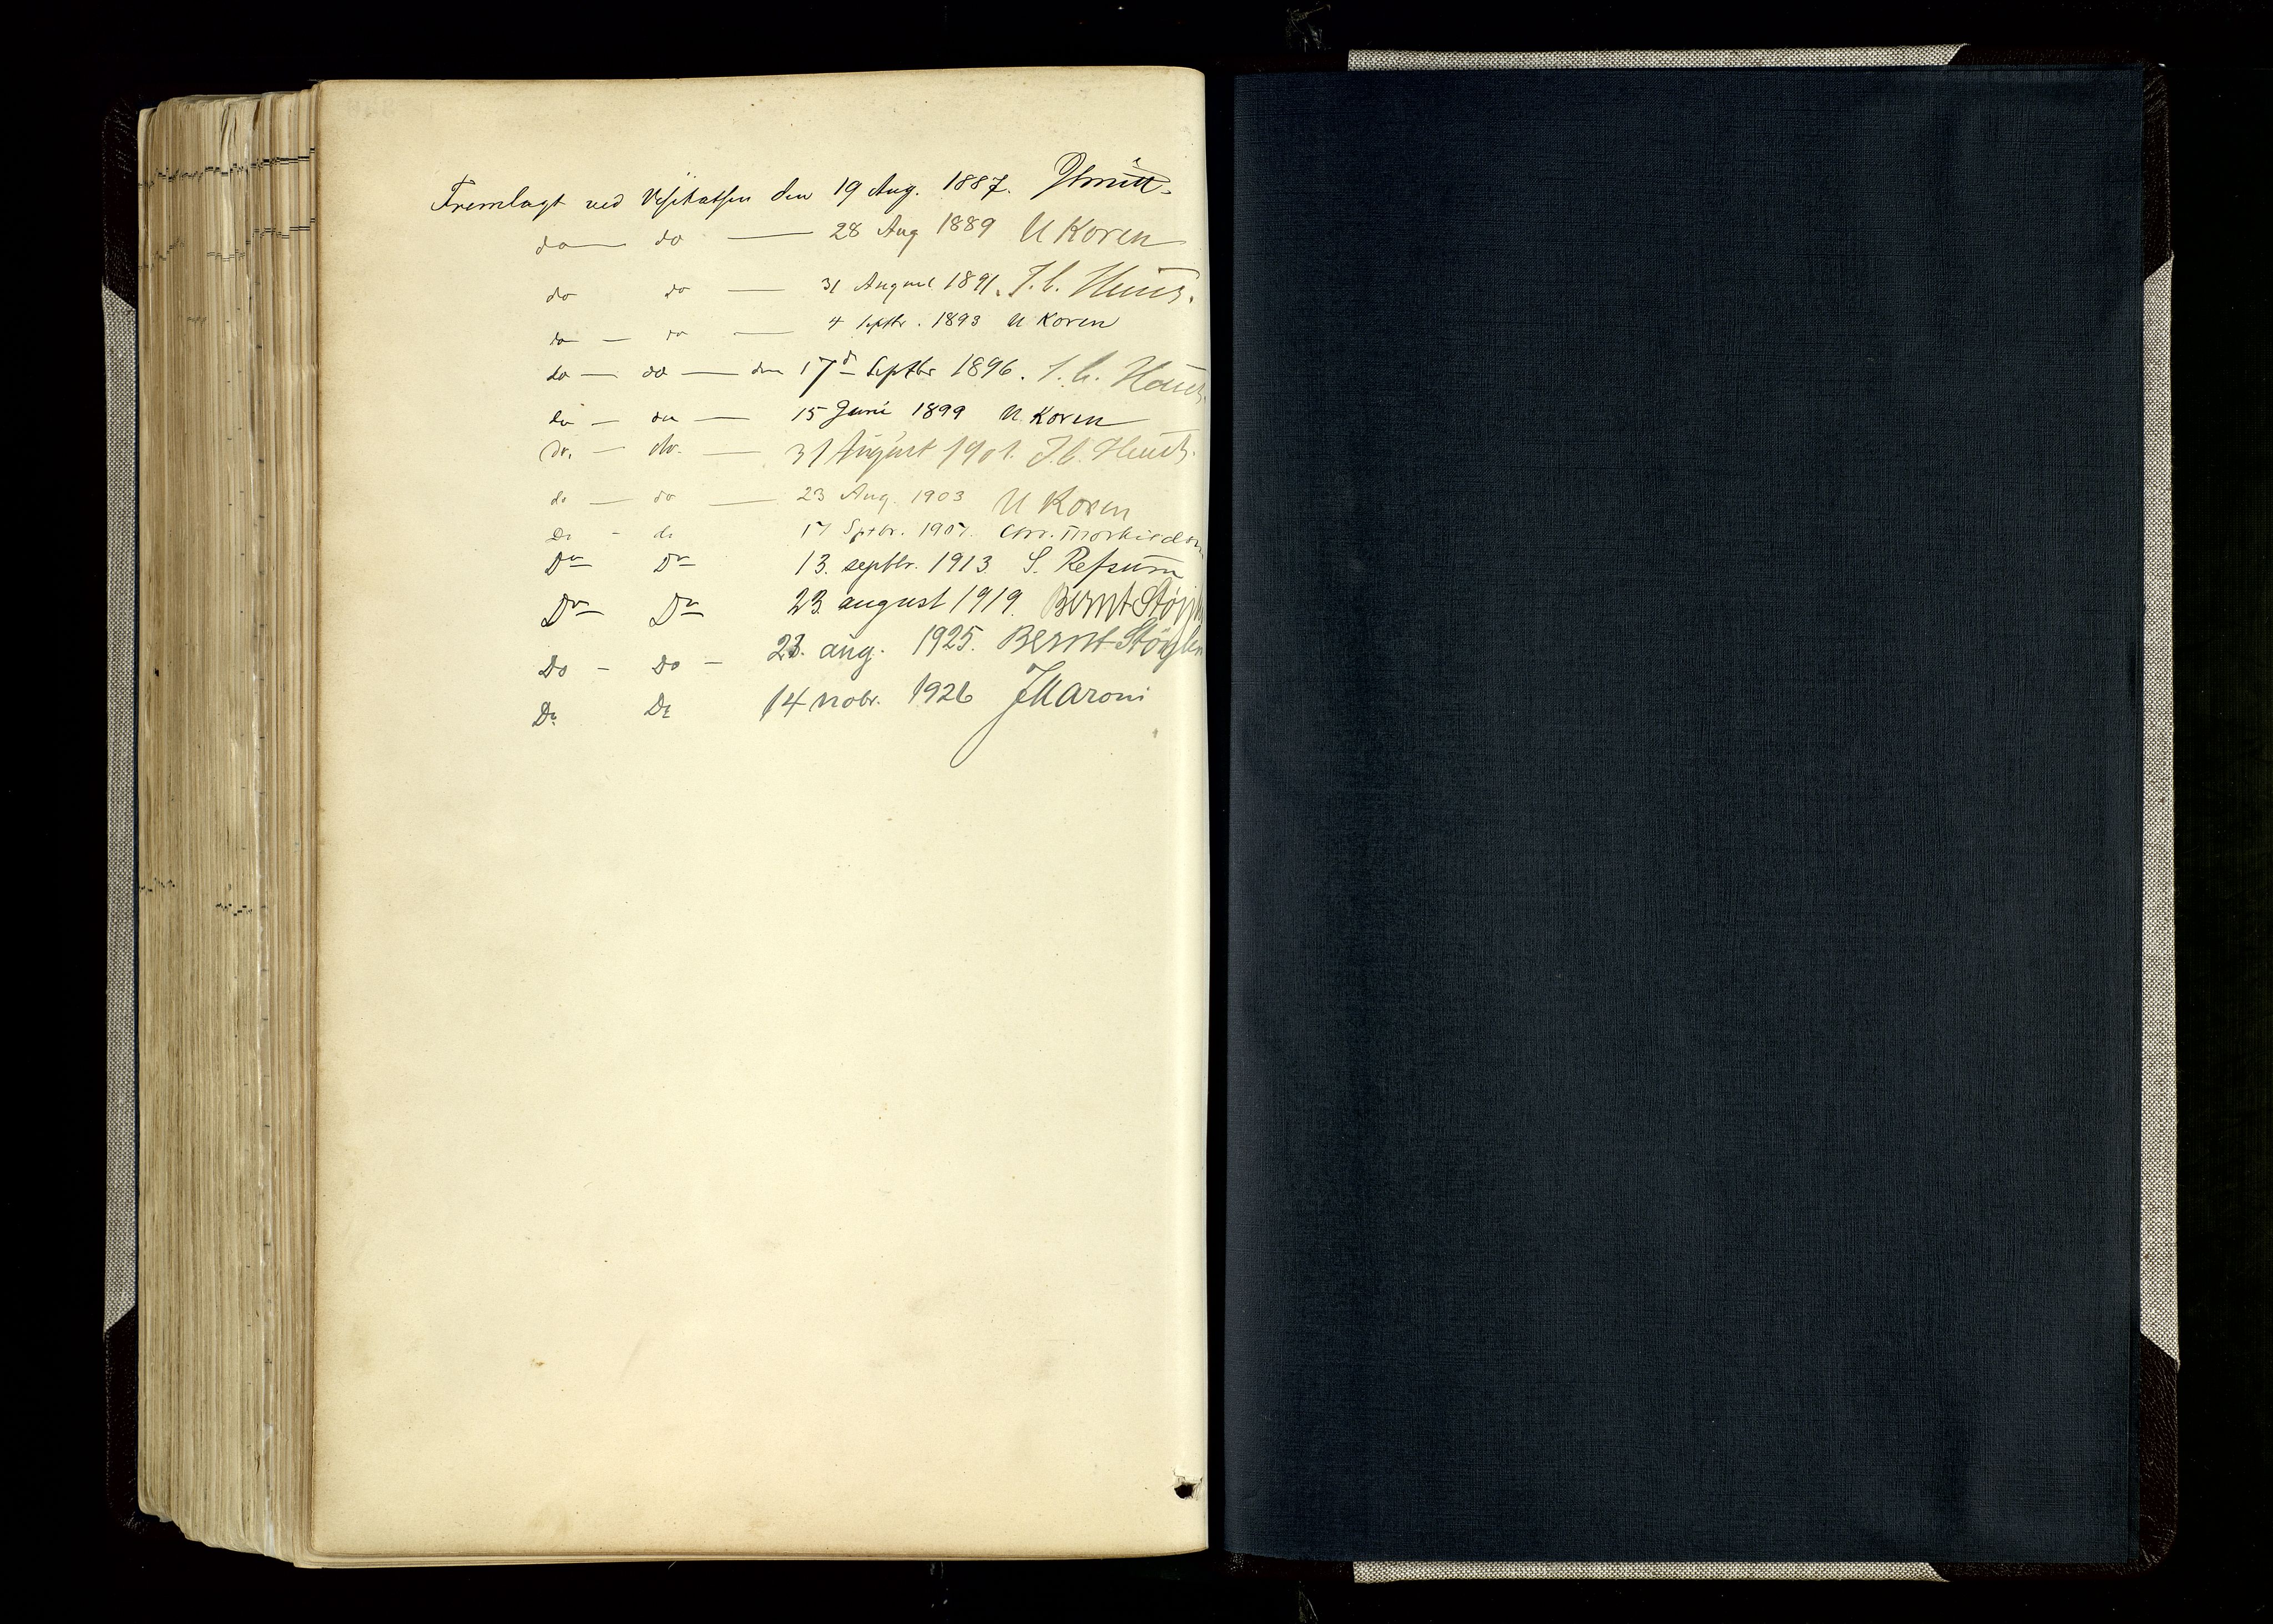 Fremlagt ved Visitatsen den 19 Aug. 1887.
do do — 28 Aug 1889 U Koren
do do — 31 August 1891. J. C. Heuch.
do — do — 4 Septbr. 1893 U Koren
do — do — den 17d Septbr 1896. J. C. Heuch.
do — do — 15 Juni 1899 U. Koren
do. — do. — 31 August 1901. J. C. Heuch.
do — do — 23 Aug. 1903 U Koren
Do - do 17 Sptbr. 1907.
Do Do 13. septbr. 1913. S. Refsum
Do Do 23. august 1919. Bernt Støylen
Do - Do - 23. aug. 1925. Bernt Støylen
Do Do 14 novbr. 1926 J Maroni